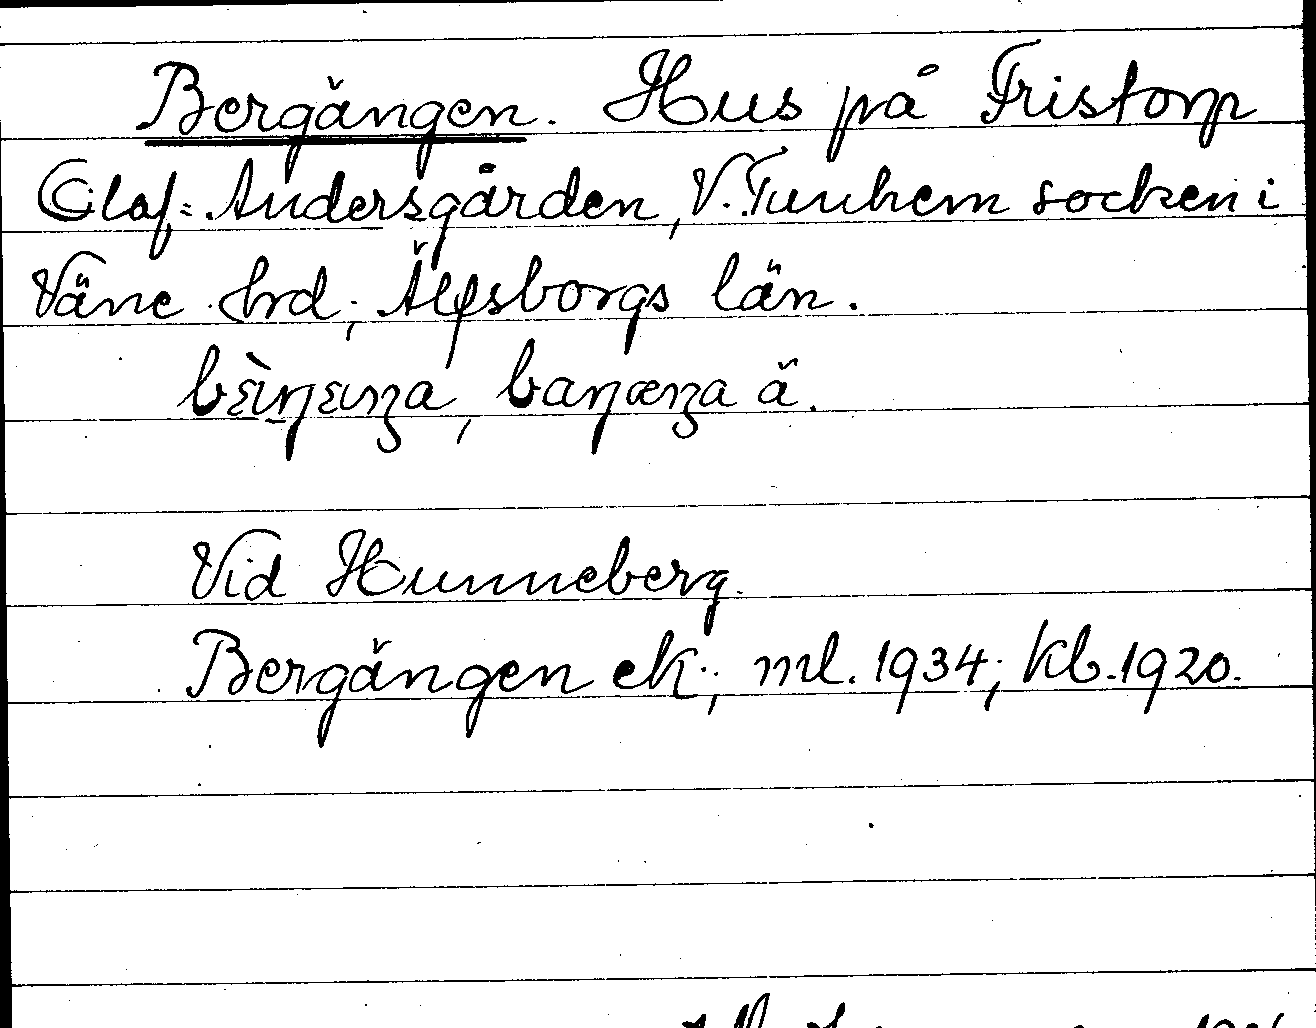 Bergängen. Hus på Fristorp
Olof-Andersgården, V. Tunhem socken i
Väne hrd; Älfsborgs län.
Vid Hunneberg.
Bergängen ek; ml. 1934; Kb. 1920.